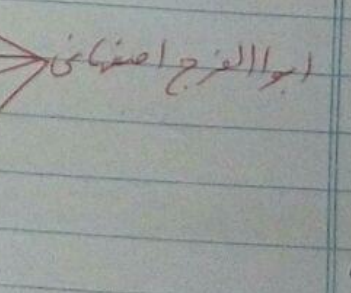 ابوالفرج اصفهانی